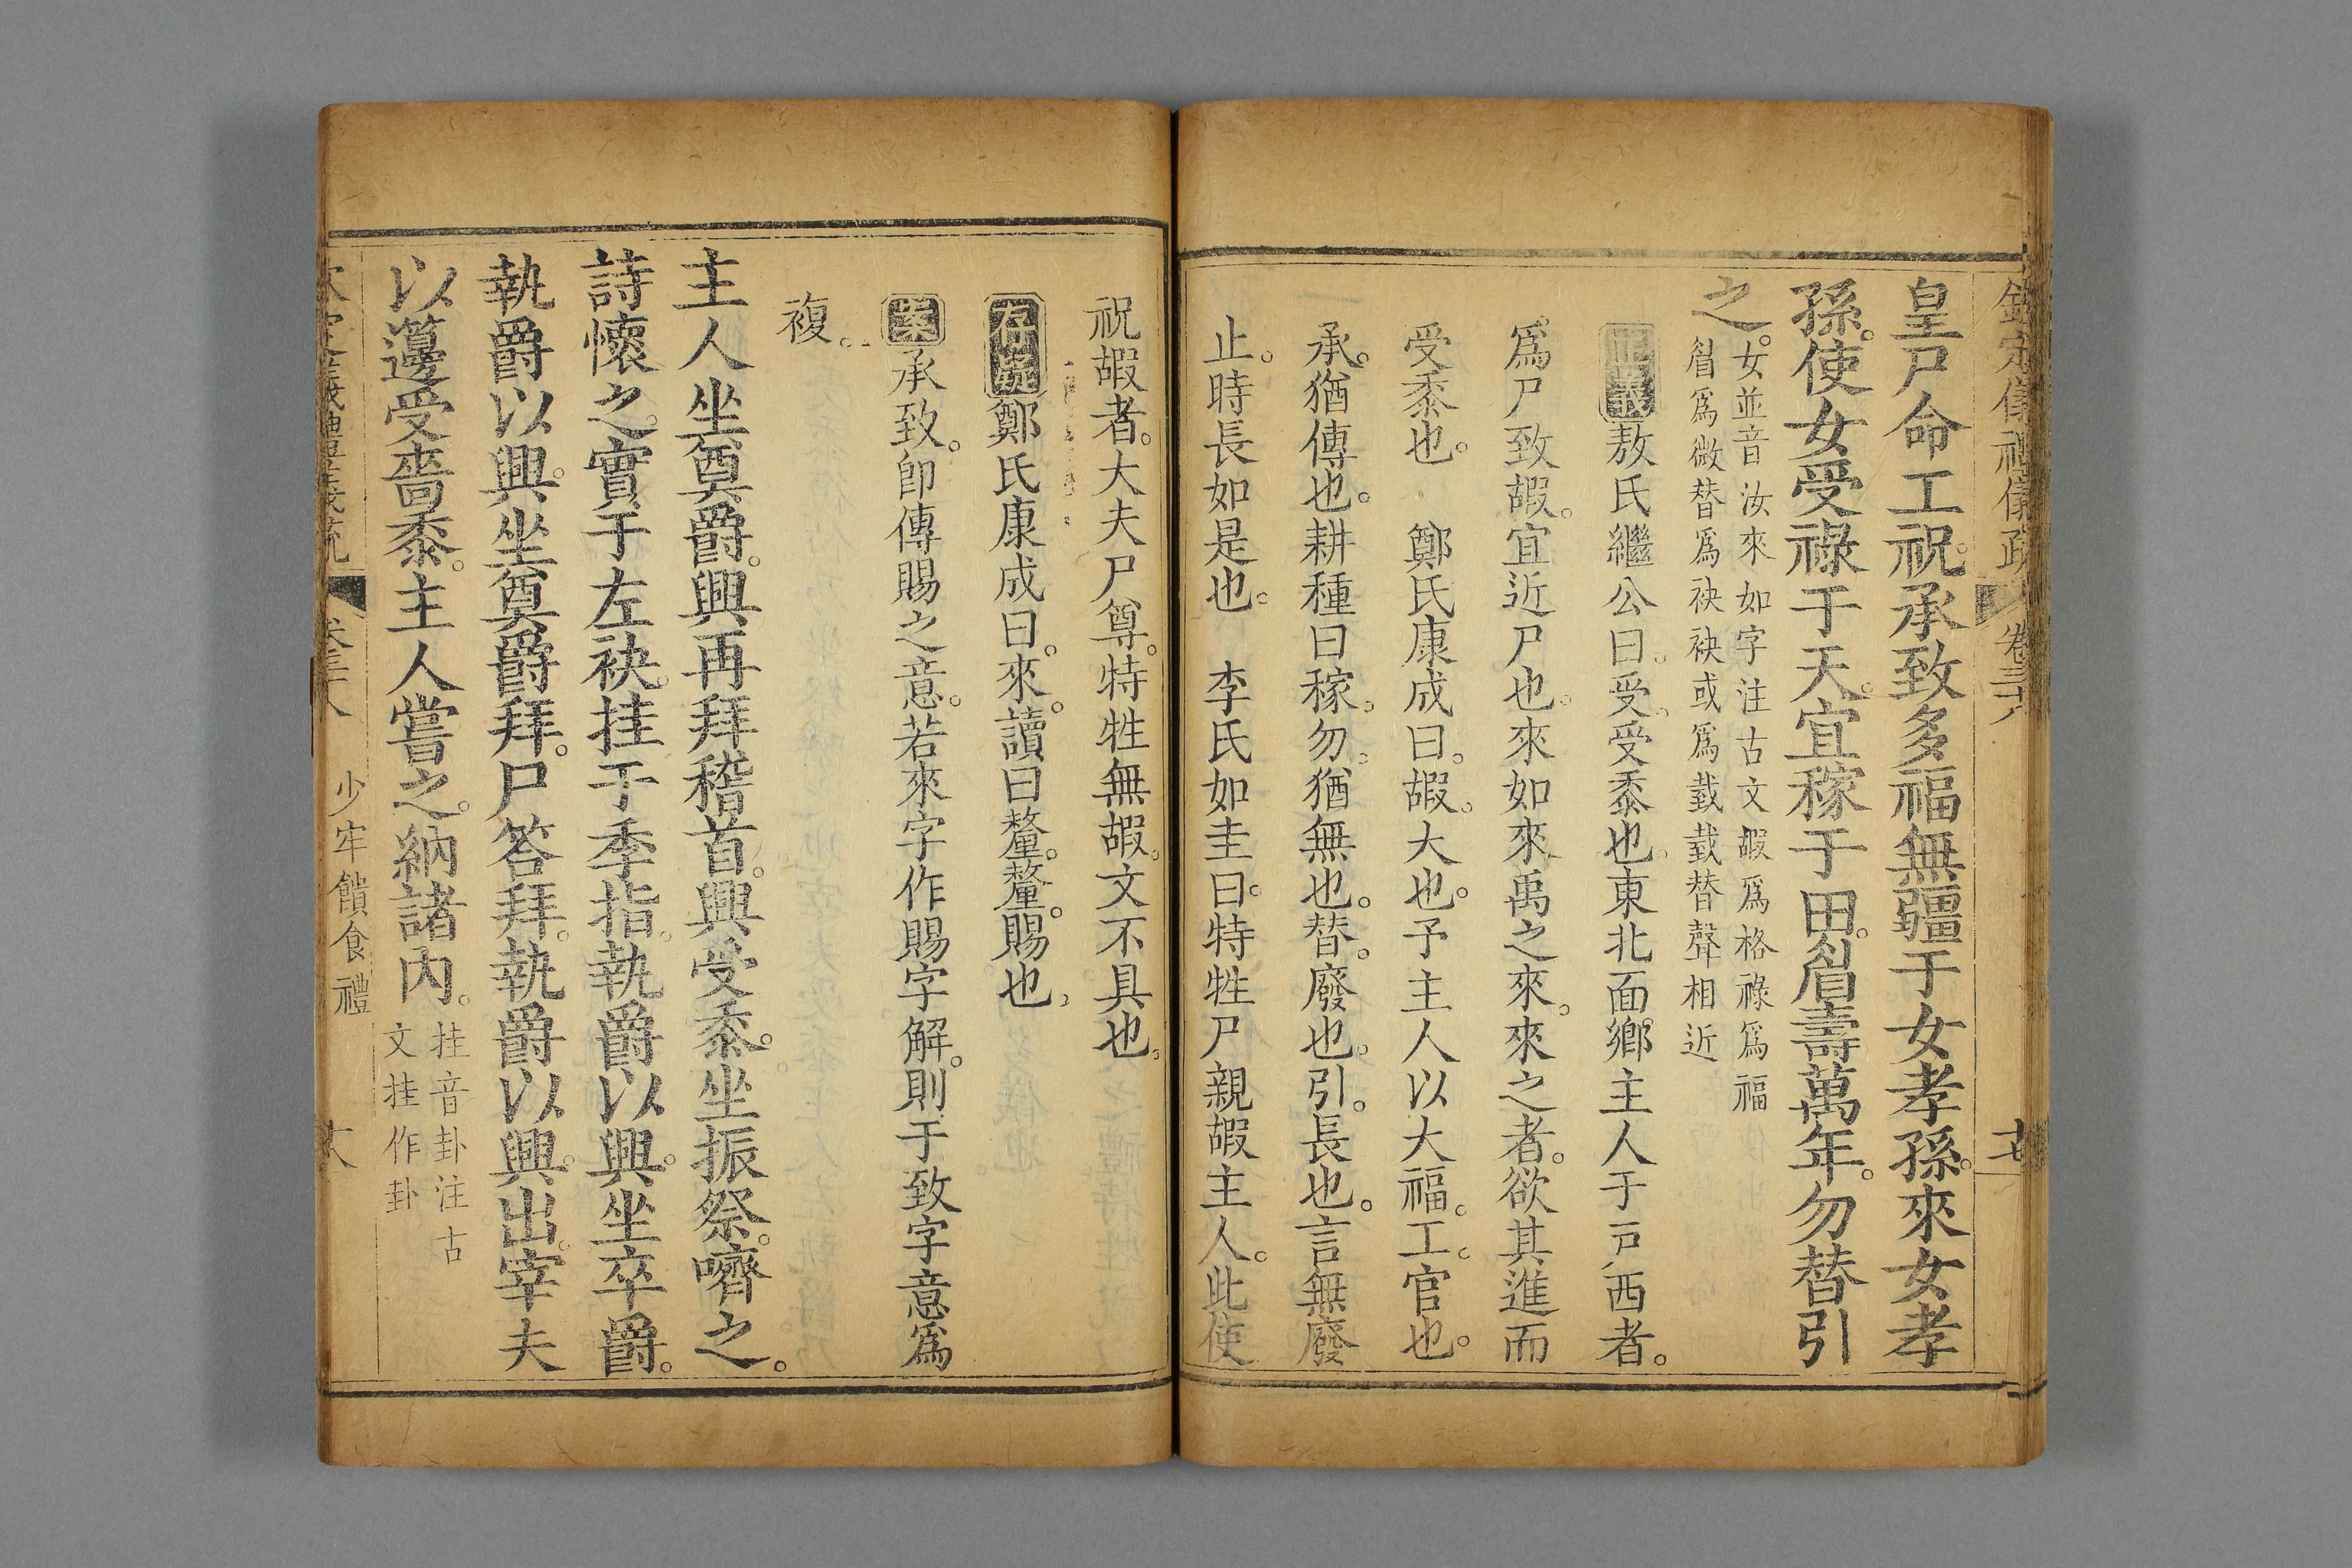 皇尸命工祝。承致多福無疆于女孝孫。來女孝
孫。使女受祿于天。宜稼于田。眉壽萬年。勿替引
之。
女並音汝來如字注古文嘏爲格祿爲福
眉爲微替爲袂袂或爲臷臷替聲相近
正義敖氏繼公曰。受。受黍也。東北面鄉主人于戸西者。
爲尸致嘏。宜近尸也。來如來禹之來。來之者。欲其進而
受黍也。 鄭氏康成曰。嘏。大也。予主人以大福。工。官也。
承。猶傳也。耕種曰稼。勿。猶無也。替。廢也。引。長也。言無廢
止。時長如是也。 李氏如圭曰。特牲尸親嘏主人。此使
祝嘏者。大夫尸尊。特牲無嘏。文不具也。
存疑鄭氏康成曰。來。讀曰釐。釐。賜也。
案承致。卽傳賜之意。若來字作賜字解。則于致字意爲
複。
主人坐奠爵。興再拜稽首。興受黍。坐振祭。嚌之。
詩懷之。實于左袂。挂于季指。執爵以興。坐卒爵。
執爵以興。坐奠爵拜。尸答拜。執爵以興。出。宰夫
以籩受嗇黍。主人嘗之。納諸內。
挂音卦注古
文挂作卦
少牢饋食禮